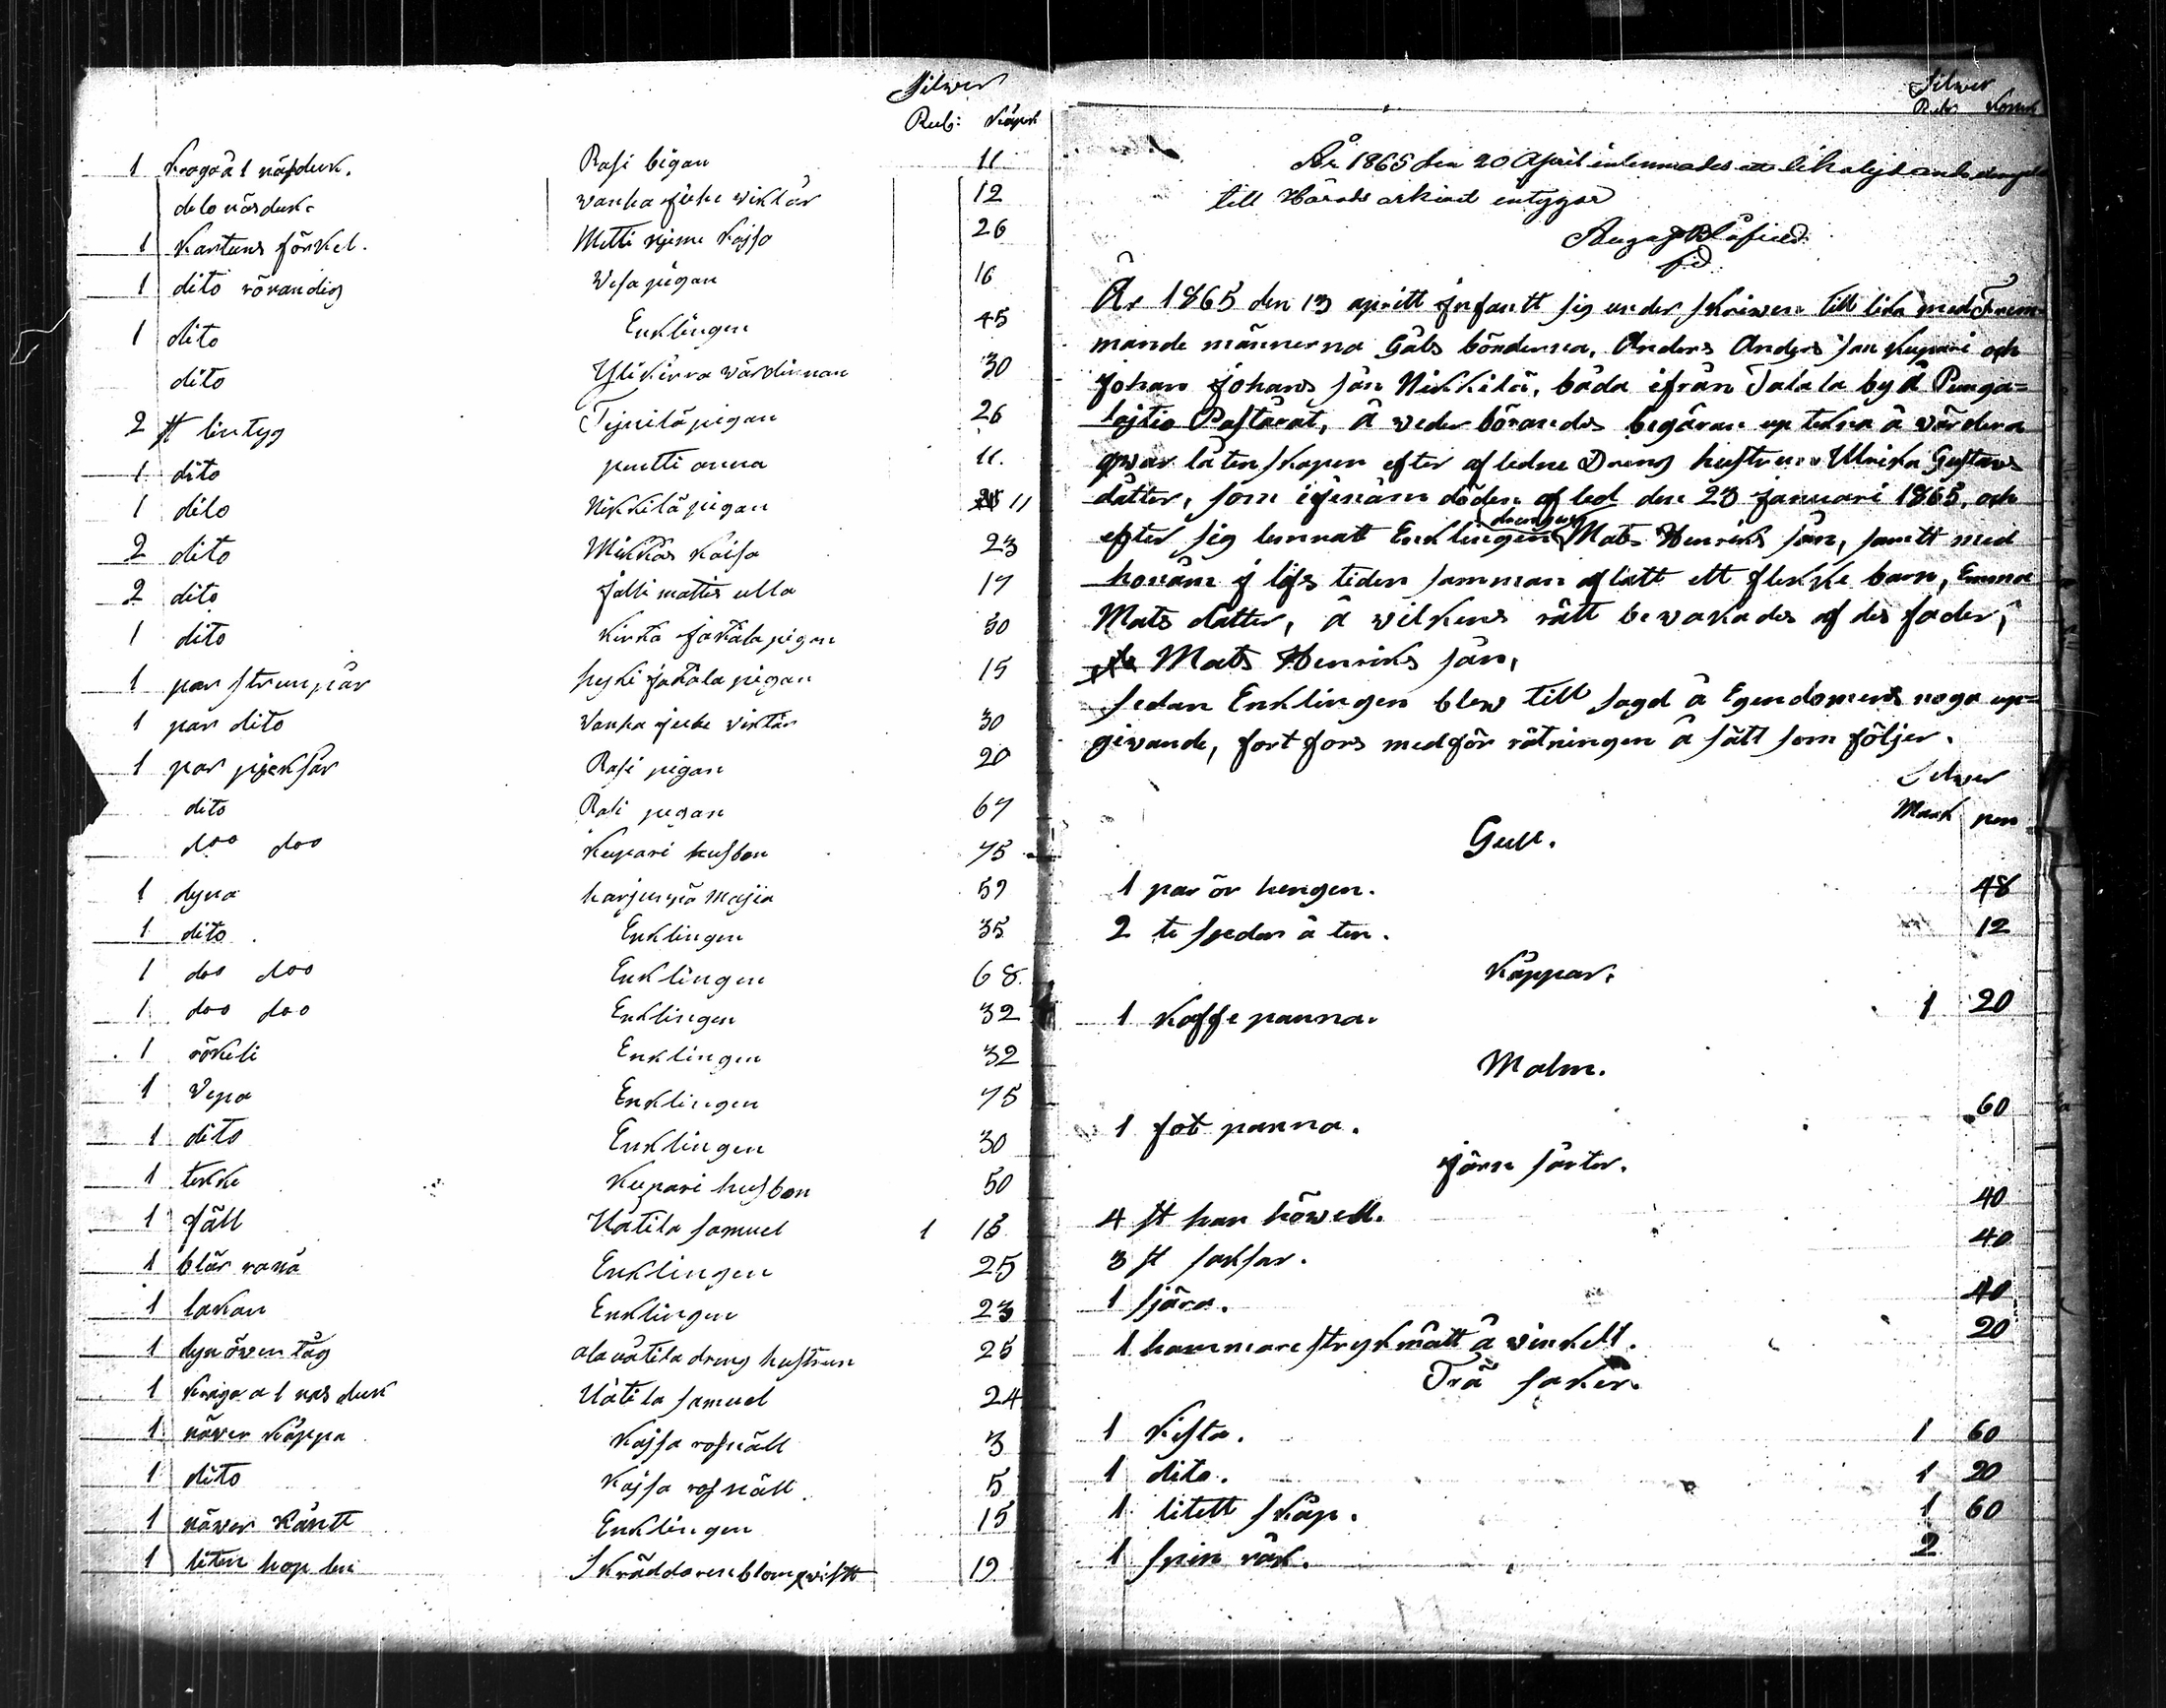 Silwer
Rub: Kåpek
1 kraga å 1 näsduk. Rasi bigan 11
dito näsduk. wanha juhe wiktår 12
1 Kartuns förkel. Metti njemi Kajsa 26
1 dito rörandig Wesa pigan 16
1 dito Enklingen 45
dito Ylikirra wärdinnan 30
2 st lintyg pigan 26
1 dito puutti anna 11.
1 dito Nikkilä pigan 11
2 dito Mikkås Kaisa 23
2 dito jalli mattis ulla 17
1 dito jakåla pigan 30
1 par strumpår jakåla pigan 15
1 par dito Vanha juhe viktår 30
1 par pjeksår Rasi pigan 20
dito Rasi pigan 67
doo doo Kupari husbon 75
1 dyna harjunpä Majia 59
1 dito Enklingen 35
1 doo doo Enklingen 68
1 doo doo Enklingen 32
1 rökeli Enklingen 32
1 Vepa Enklingen 75
1 dito Enklingen 30
1 tekke Kupari husbon 50
1 fäll Uåtila samuel 1 15
1 blår Enklingen 25
1 lakan Enklingen 23
1 dynöwertåg ala uåtila dreng hustrun 25
1 kraga a 1 nas duk Uåtila samuel 24
1 näver kåppa Kajsa rosnäll 3
1 dito Kajsa rosnäll 5
1 näwer Kåntt Enklingen 15
1 liten hop lin Skräddaren blomqwistt 19
Silwer
Rub Kopek
År 1865 den 20 April inlemnades ett likalydande
till Härads arkivet intygar
År 1865 den 13 aprill infantt sig under skriwen till lika med Frem-
mande männerna Gåls bönderna, Anders Anders sån Kupari och
Johan Johans sån Nikkilä, båda ifrån Talala by å Punga-
lajtio Pastårat, å weder börandes begäran up tekna å värdera
qwar låtenskapen efter afledne Dreng hustrun Ulrika Gustavs
dåtter, som igenåm döden af led den 23 januari 1865, och
efter sig lemnatt Enklingen drengen Mats Henriks sån, samtt med
honåm i lifs tiden samman aflatt ett flikke barn, Emma
Mats dåtter, å wilkens rätt bewakades af des fader,
Mats Henriks sån,
sedan Enklingen blew till sagd å Egendomens noga up-
givande, fort fors medför rätningen å sätt som följer.
Silwer
Mark pen
Gull.
1 par ör hengen. 48
2 te skedar å ten. 12
Kåppar.
1 Kaffe panna. 1 20
Malm.
1 fot panna. 60
järn såriter.
4 st han höwell. 40
3 st saksar. 40
1 sjära. 40
1 hammare stryk mått å vinkell. 20
Trä saker.
1 Kista. 1 60
1 dito. 1 20
1 litett skåp. 1 60
1 spin råk. 2